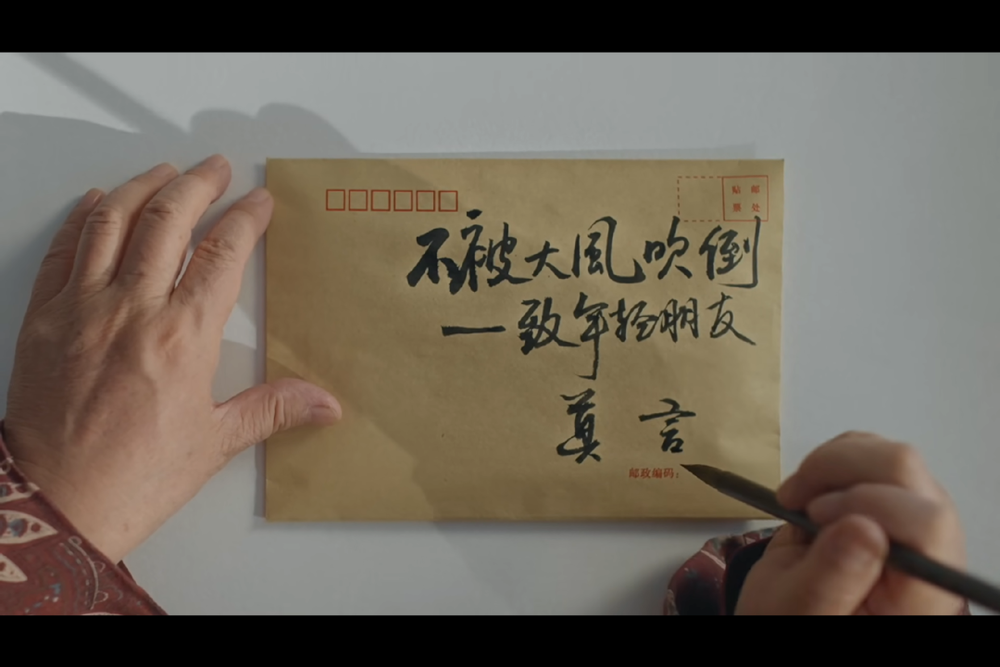 贴邮
票处
不被大風吹倒
—致年轻朋友
莫言
邮政编码：